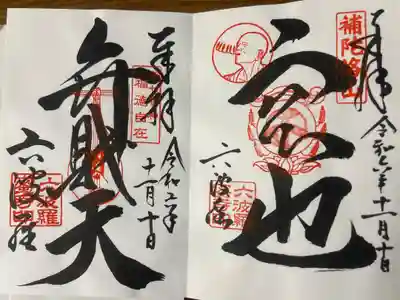 奉拝
補陀洛山
令和二年十一月十日
空也
六波羅
六波羅
奉拝
令和二年
十一月十日
福徳自在
弁財天
六波羅